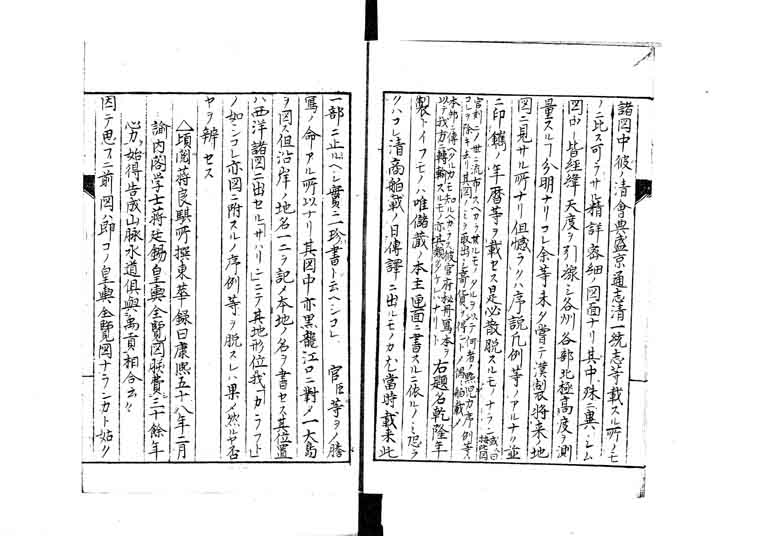 諸図中彼ノ清會典盛京通志清一統志等載スル所ノモ
ノニ比ス可ラサル精詳密細ノ図面ナリ其中殊ニ異ハシム
図中皆經緯天度ヲ引線シ各州各部北極高度ヲ測
量スルヿ分明ナリコレ余等未タ嘗テ漢製将来ノ地
図ニ見サル所ナリ但憾ラクハ序説凡例等ノアルナク並
ニ印鐫ノ年暦等ヲ載セス是必散脱スルモノナラン
右題名乾隆年
製トイフモノハ唯儲蔵ノ本主匣面ニ書スルニ依ルノミ恐ラ
クハコレ清商舶載ノ日傳譯ニ出ルモノカ尤當時載来此
一部ニ止ルヘシ實ニ一珍書ト云ヘシコレ 官臣等ヲノ謄
寫ノ命アル所以ナリ其図中亦黒龍江口ニ對ノ一大島
ヲ図ス但沿岸ノ地名一二ヲ記ノ本地ノ名ヲ書セス其位置
ハ西洋諸図ニ出セルサハリインニテ其地形位我カラフト
ノ如シコレ亦図ニ附スルノ序例等ヲ脱スレハ果ノ然ルヤ否
ヤヲ辨セス
△頃閲蔣良騏所撰東華録曰康熙五十八年二月
諭内閣学士蔣廷錫皇輿全覧図朕費三十餘年
心力始得告成山脉水道俱與禹貢相合云々
因テ思フニ前図ハ即コノ皇輿全覧図ナランカト姑ク